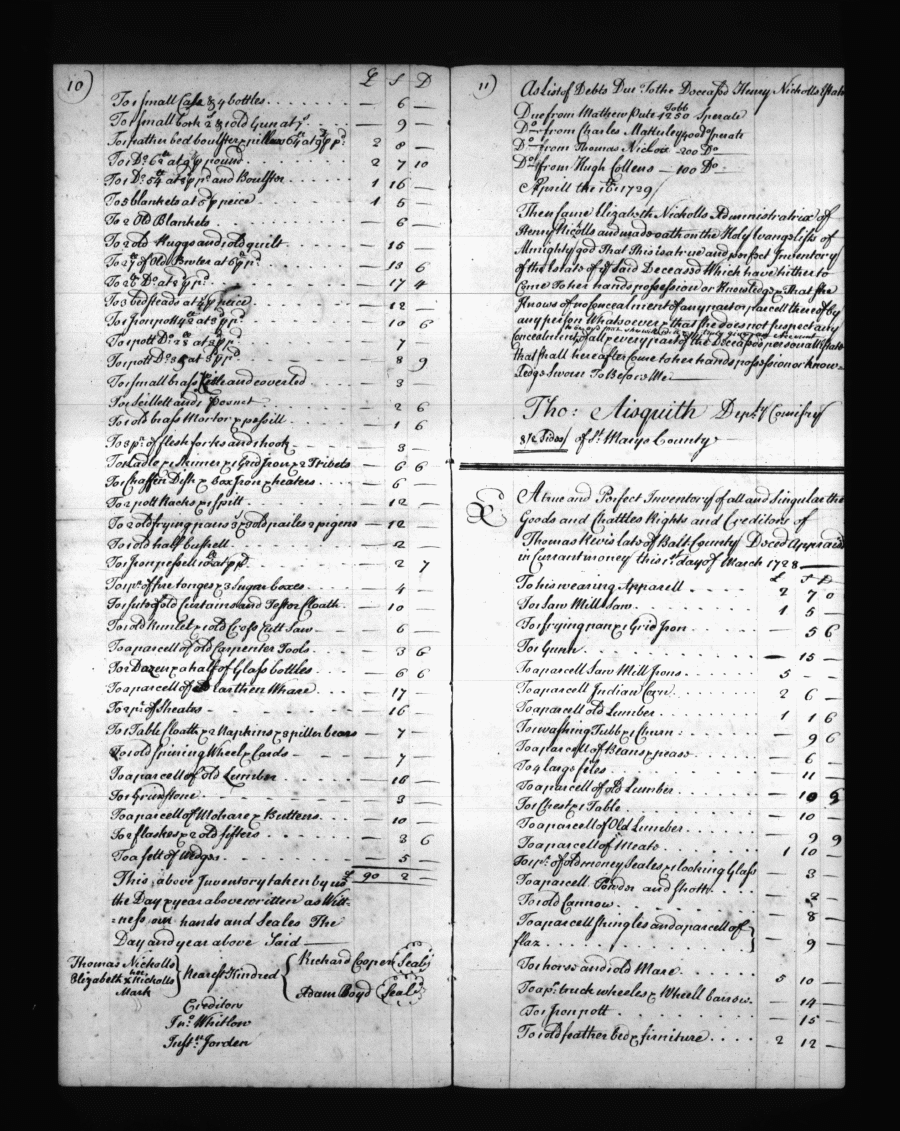 10)
£ S D
To 1 small Case & 4 bottles . . . . . . — 6 —
To 1 small book 2/ & 1 old Gun at 7/ . . — 9 —
To 1 feather bed boulster & pillow 64lb at 9d p pd 2 8 —
To 1 Do 62lb at 9d p pound . . . . 2 7 10
To 1 Do 54lb at p pd and Boulster . . . . 1 16 —
To 5 blankets at p peice . . . . 1 5 —
To 2 Old Blankets — 6 —
To 2 old Ruggs and 1 old quilt — 15 —
To 27lb of Old Pewter at 6d p pd — 13 6
To 26lb Do at 8d p pd — 17 4
To 3 bedsteads at 4/ p peice — 12 —
To 1 Iron pott 42lb at 3d p pd — 10 6
To 1 pott Do 28lb at 3d p pd — 7 —
To 1 pott Do 35lb at 3d p pd — 8 9
To 1 small brass Kittle and coverled — 3 —
To 1 Scillett and 1 Posnet — 2 6
To 1 old brass Mortor & pessill — 1 6
To 3 pr of flesh forks and 1 hook — 3 —
To 1 Ladle & 1 skimer & 1 Grid Iron & 2 Tribets — 6 6
To 1 Chaffen Dish & box Iron & heaters — 6 —
To 2 pott Racks & 1 spitt — 12 —
To 2 old frying pans 3 & 3 old pailes 2 pigens — 12 —
To 1 old half bushell — 2 —
To 1 Iron pessell 10lb at pd — 2 7
To 1 pr of fire tonges & 3 Sugar boxes — 4 —
To 1 sute of old Curtains and Testor Cloath — 10 —
To 1 old Runlet & 1 old Cross Cutt Saw — 6 —
To a parcell of old Carpenter Tools — 3 6
To 2 Dozen & a half of Glass bottles — 6 6
To a parcell of Earthen Whare — 17 —
To 2 pr of Sheates — 16 —
To 1 Table Cloath & 2 Napkins & 3 piller bears — 7 —
To 1 old Spining Wheel & Cards — 7 —
To a parcell of old Lumber — 18 —
To 1 Grinstone — 3 —
To a parcell of Mohare & Buttens — 10 —
To 2 flaskes & 2 old sifters — 3 6
To a sett of Wedges — 5 —
This above Inventory taken by us £ 90 2 —
the Day & year above written as Witt-
=ness our hands and Seales The
Day and year above Said —
Thomas Nicholls
her
Elizabeth X Nicholls
Mark
Nearest Kindred
Richard Cooper Seal
Adam Boyd Seal
Creditors
Jno Whitlow
Jorden
11)
A List of Debts Due To the Deceasd Henry Nicholls Estate
Due from Mathew Pate 1250 Tobb Sperate
Do from Charles Mattuley 400 desperate
Do from Thomas Nickoll — 200 Do
Do from Hugh Collens — 100 Do
Aprill the 1729
Then Came Elizabeth Nicholls Administratrix of
Henry Nicolls and made oath on the Holy Evangelists of
Almighty god That This is a true and perfect Inventory
of the Estate of ye Said Deceased Which have hitherto
Come To her hands possession or Knowledge & That she
Knows of no Concealment of any part or parcell thereof by
any person Whatsoever & that she does not suspect any
Concealment of all & every part of the Deceased's personall Estate
That shall hereafter Come to her hands possession or know=
ledge Sworn To Before Me
Tho: Aisquith Depty Comisry
8 1/2 Sides of St Marys County
A true and Perfect Inventory of all and Singular the
Goods and Chattles Rights and Creditors of
Thomas Revis late of Balt County Decsd Appraisd
in Currant money this 1st day of March 1728
£ S D
To his wearing Apparell 2 7 0
To 1 Saw Mill Saw 1 5 —
To 1 frying pan & 1 Grid Iron — 5 6
To 1 Gunn — 15 —
To a parcell Saw Mill Irons 5 —
To a parcell Indian Corn 2 6 —
To a parcell old Lumber 1 1 6
To 1 washing Tubb & 1 Churn — 9 6
To a parcell of Beans & pease — 6 —
To 4 large files — 11 —
To a parcell of old Lumber — 10 6
To 1 Chest & 1 Table — 10 —
To a parcell of Old Lumber — 9 9
To a parcell of Meate 1 10 —
To 1 pr of old money Scales & 1 looking Glass — 3 —
To a parcell Powder and Shott — 2 —
To 1 old Cannow — 8 —
To a parcell Shingles and a parcell of
flax — 9 —
To 1 horse and 1 old Mare 5 10 —
To a pr truck wheeles & Wheell barrow — 14 —
To 1 Iron pott — 15 —
To 1 old feather bed & firniture 2 12 —